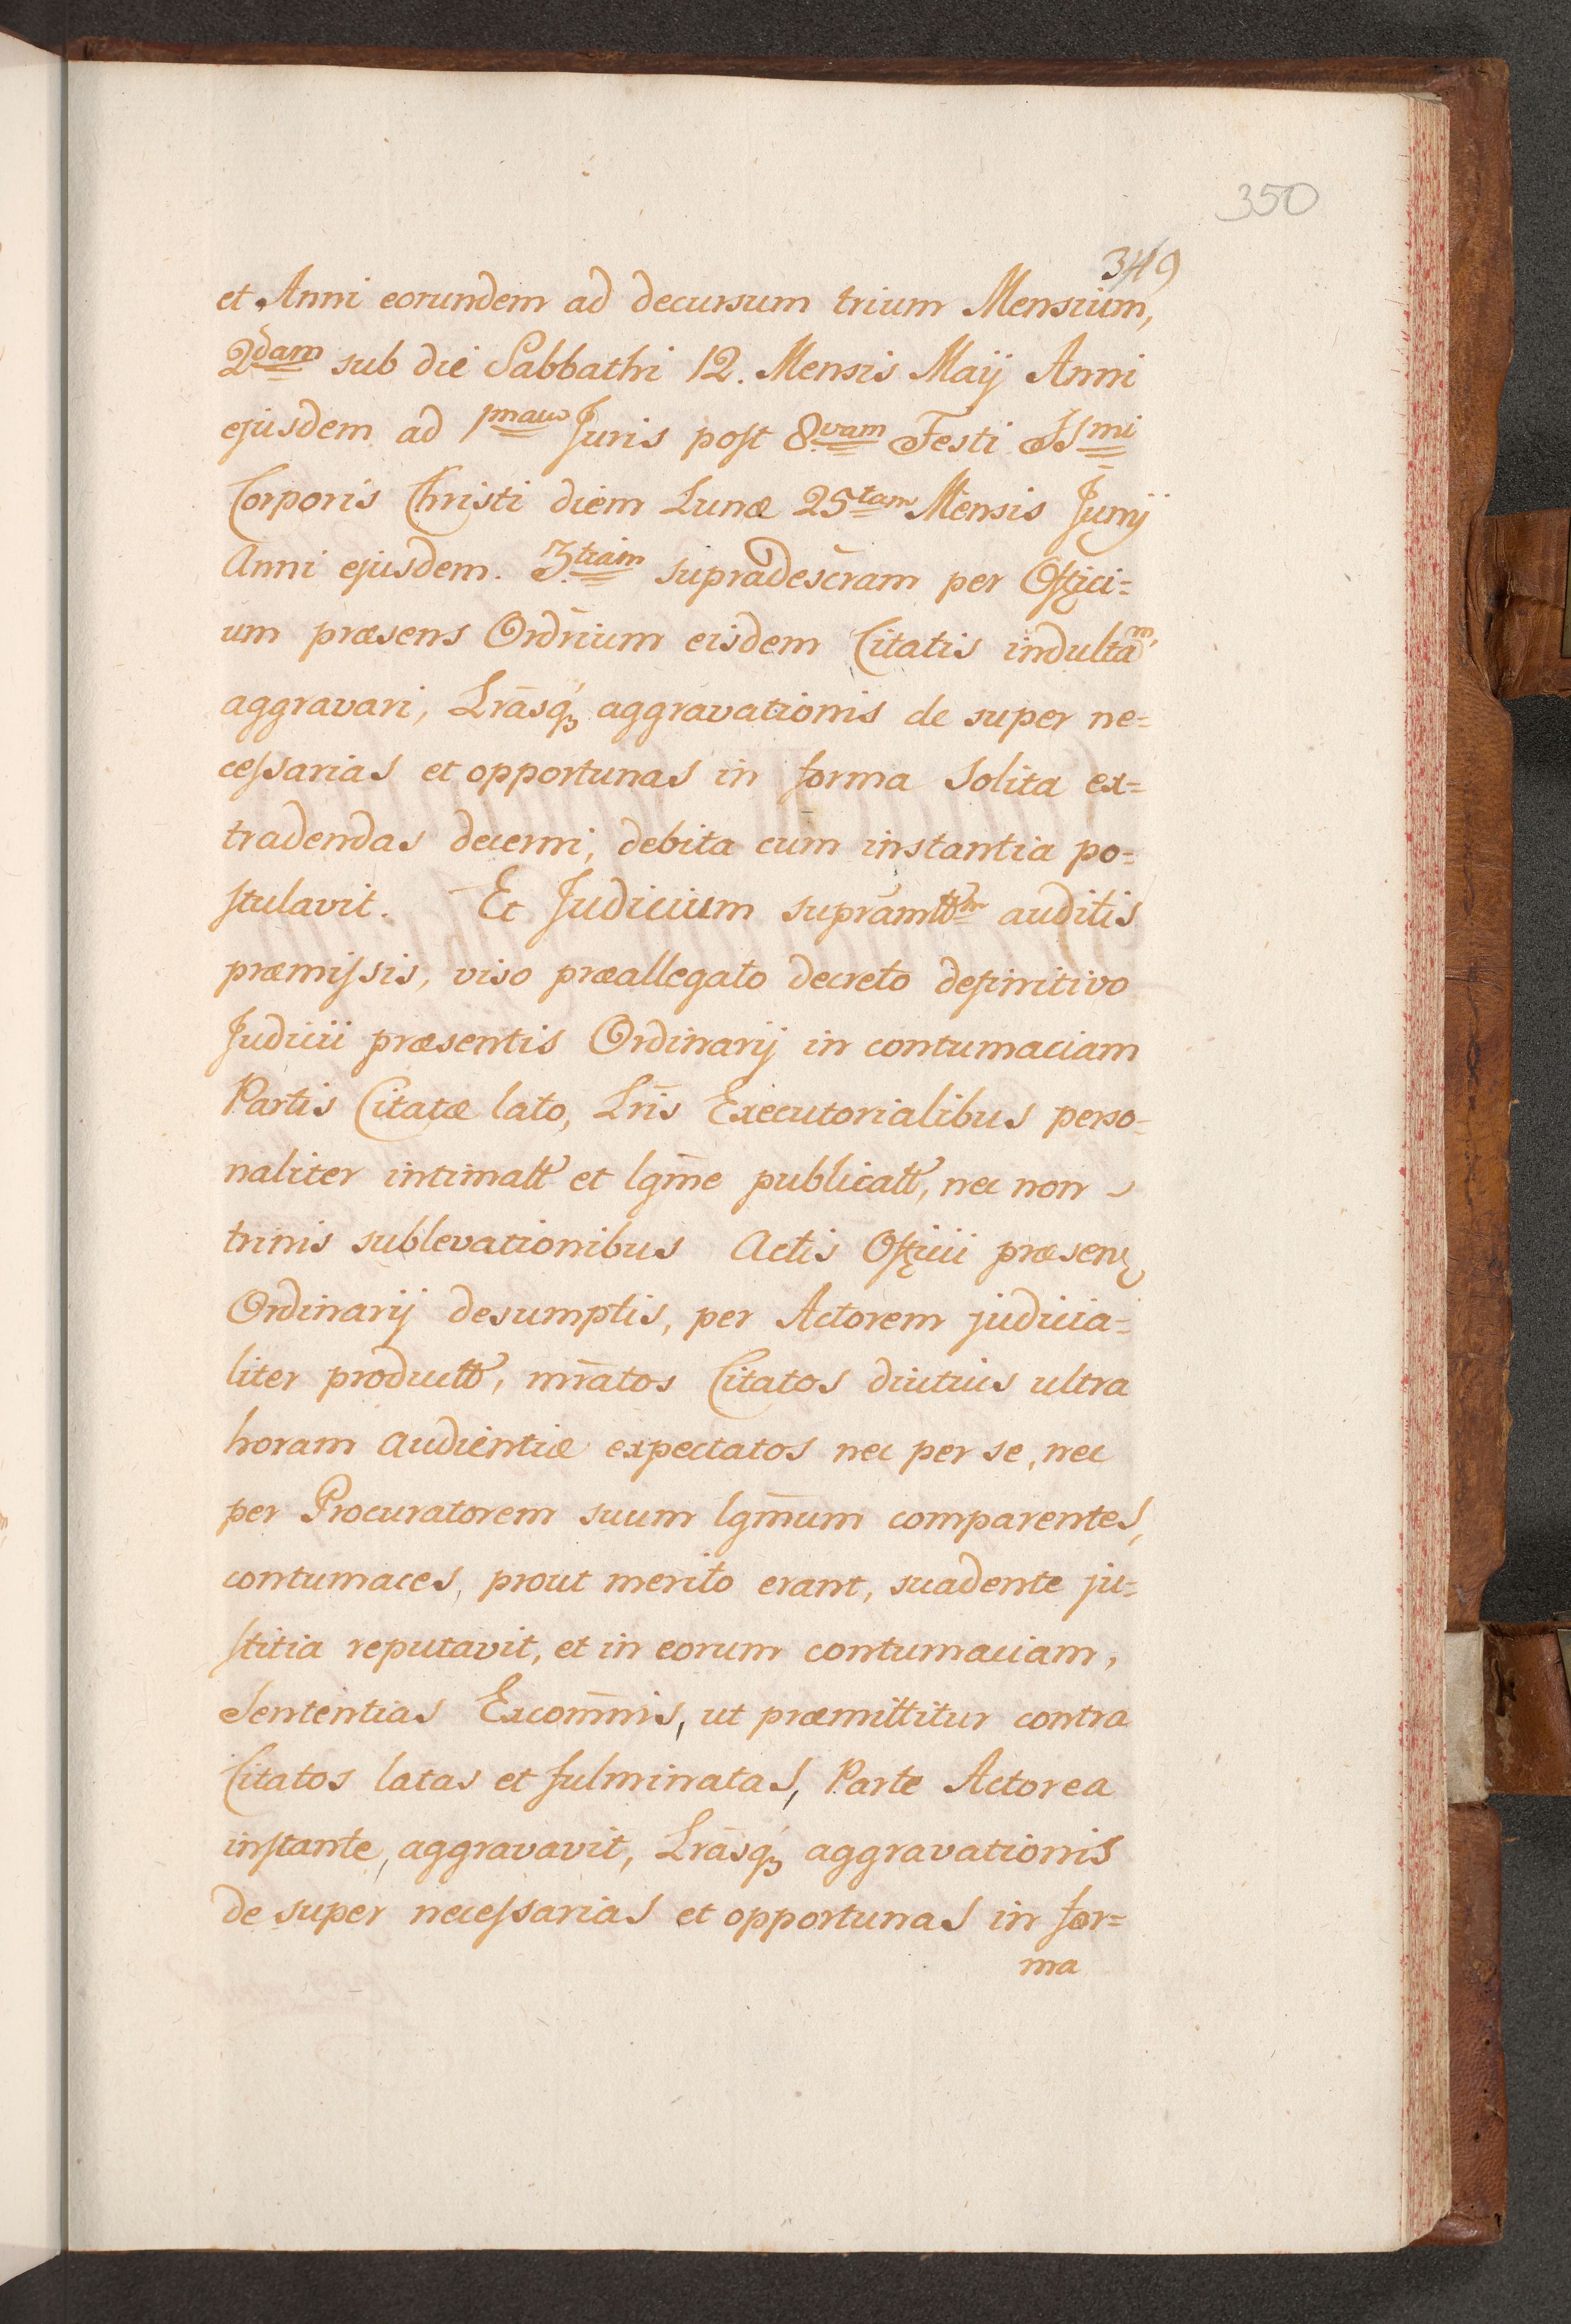 350
349
et Anni eorundem ad decursum trium Mensium,
2dam sub die Sabbathi 12. Mensis Maij Anni
ejusdem ad 1mam Juris post 8vam Festi SSmi
Corporis Christi diem Lunæ 25tam Mensis Junij
Anni ejusdem. 3tiam supradescram per Offici=
um præsens Ordrium eisdem Citatis indultam,
aggravari, Lrāsq₃ aggravationis de super ne=
cessarias et opportunas in forma solita ex=
tradendas decerni, debita cum instantia po=
stulavit. Et Judicium auditis
præmissis, viso præallegato decreto definitivo
Judicii præsentis Ordinarij in contumaciam
Partis Citatæ lato, Lrīs Executorialibus perso=
naliter intimatt et lgm̄e publicatt, nec non
trinis sublevationibus Actis Officii præsen
Ordinarij desumptis, per Actorem judicia=
liter productt, mr̄atos Citatos diutius ultra
horam audientiæ expectatos nec per se, nec
per Procuratorem suum lgm̄um comparentes,
contumaces, prout merito erant, suadente ju=
stitia reputavit, et in eorum contumaciam,
Sententias Excom̄nis, ut præmittitur contra
Citatos latas et fulminatas, Parte Actorea
instante, aggravavit, Lrāsq₃ aggravationis
de super necessarias et opportunas in for=
ma